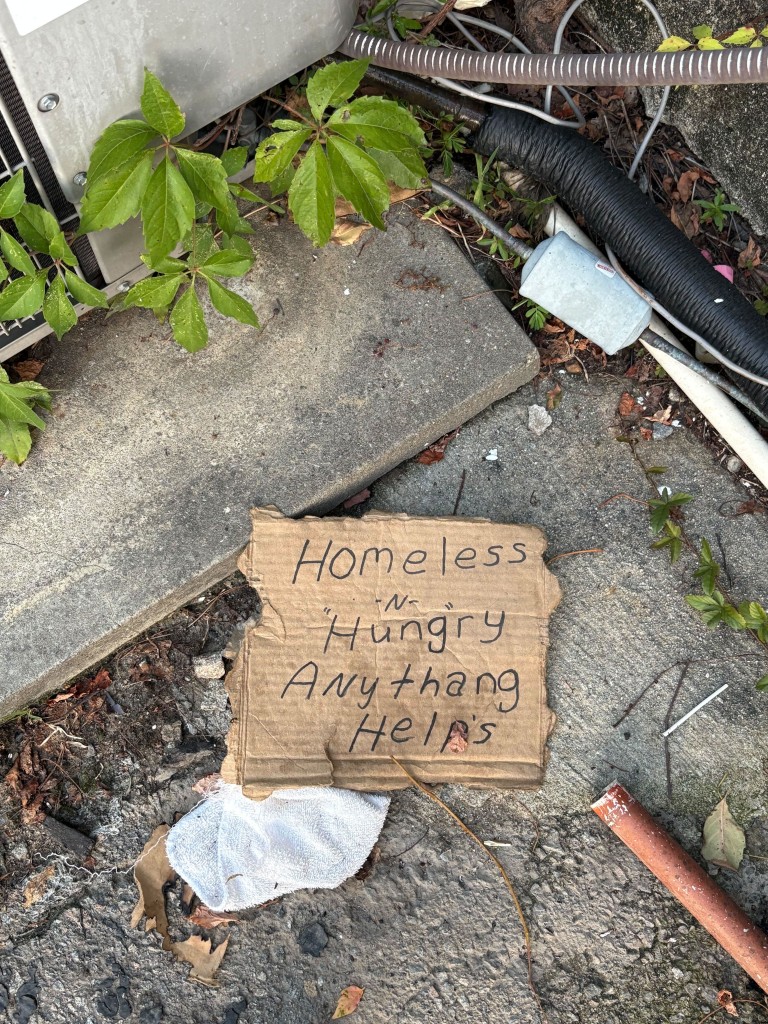 Homeless
-N-
"Hungry"
Anythang
Help's